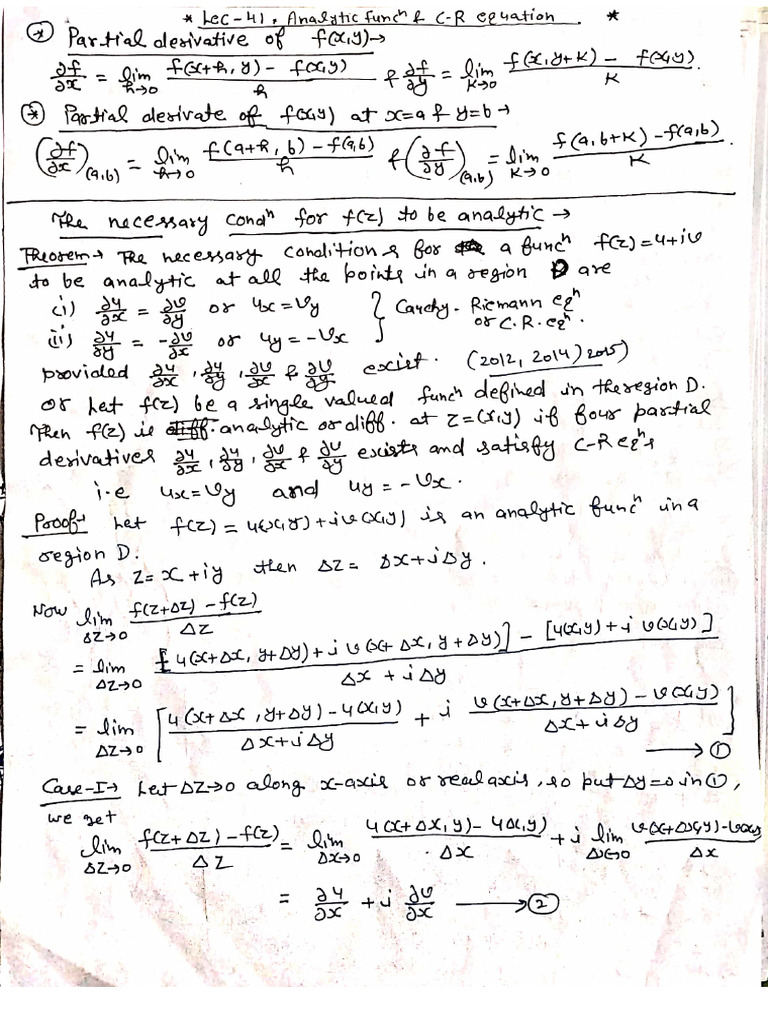 * Lec-41, Analytic funcⁿ & C-R equation. *
* Partial desivative of f(x,y)→
∂f/∂x = lim h→0 f(x+h, y) - f(x,y) / h & ∂f/∂y = lim K→0 f(x, y+K) - f(x,y) / K.
* Partial desivate of f(x,y) at x=a & y=b →
(∂f/∂x)(a,b) = lim h→0 f(a+h, b) - f(a,b) / h & (∂f/∂y)(a,b) = lim K→0 f(a, b+K) - f(a,b) / K.
The necessary condⁿ for f(z) to be analytic →
Theorem→ The necessary conditions for a funcⁿ f(z)=u+iv
to be analytic at all the points in a region D are
(i) ∂u/∂x = ∂v/∂y or ux=vy } Cauchy-Riemann eqⁿ
(ii) ∂u/∂y = -∂v/∂x or uy=-vx } or C.R. eqⁿ.
provided ∂u/∂x, ∂u/∂y, ∂v/∂x & ∂v/∂y exist. (2012, 2014) 2015)
or Let f(z) be a single valued funcⁿ defined in the region D.
Then f(z) is diff. analytic or diff. at z=(x,y) if four partial
derivatives ∂u/∂x, ∂u/∂y, ∂v/∂x & ∂v/∂y exists and satisfy C-R eqⁿs
i.e ux=vy and uy=-vx.
Proof→ Let f(z) = u(x,y)+iv(x,y) is an analytic funcⁿ in a
region D.
As z=x+iy then Δz= Δx+iΔy.
Now lim Δz→0 f(z+Δz) - f(z) / Δz
= lim Δz→0 [u(x+Δx, y+Δy)+i v(x+Δx, y+Δy)] - [u(x,y)+i v(x,y)] / Δx + iΔy
= lim Δz→0 [u(x+Δx, y+Δy) - u(x,y) / Δx+iΔy + i v(x+Δx, y+Δy) - v(x,y) / Δx+iΔy] → ①
Case-I→ Let Δz→0 along x-axis or real axis, so put Δy=0 in ①,
we get
lim Δz→0 f(z+Δz) - f(z) / Δz = lim Δx→0 u(x+Δx, y) - u(x,y) / Δx + i lim Δx→0 v(x+Δx,y) - v(x,y) / Δx
= ∂u/∂x + i ∂v/∂x → ②